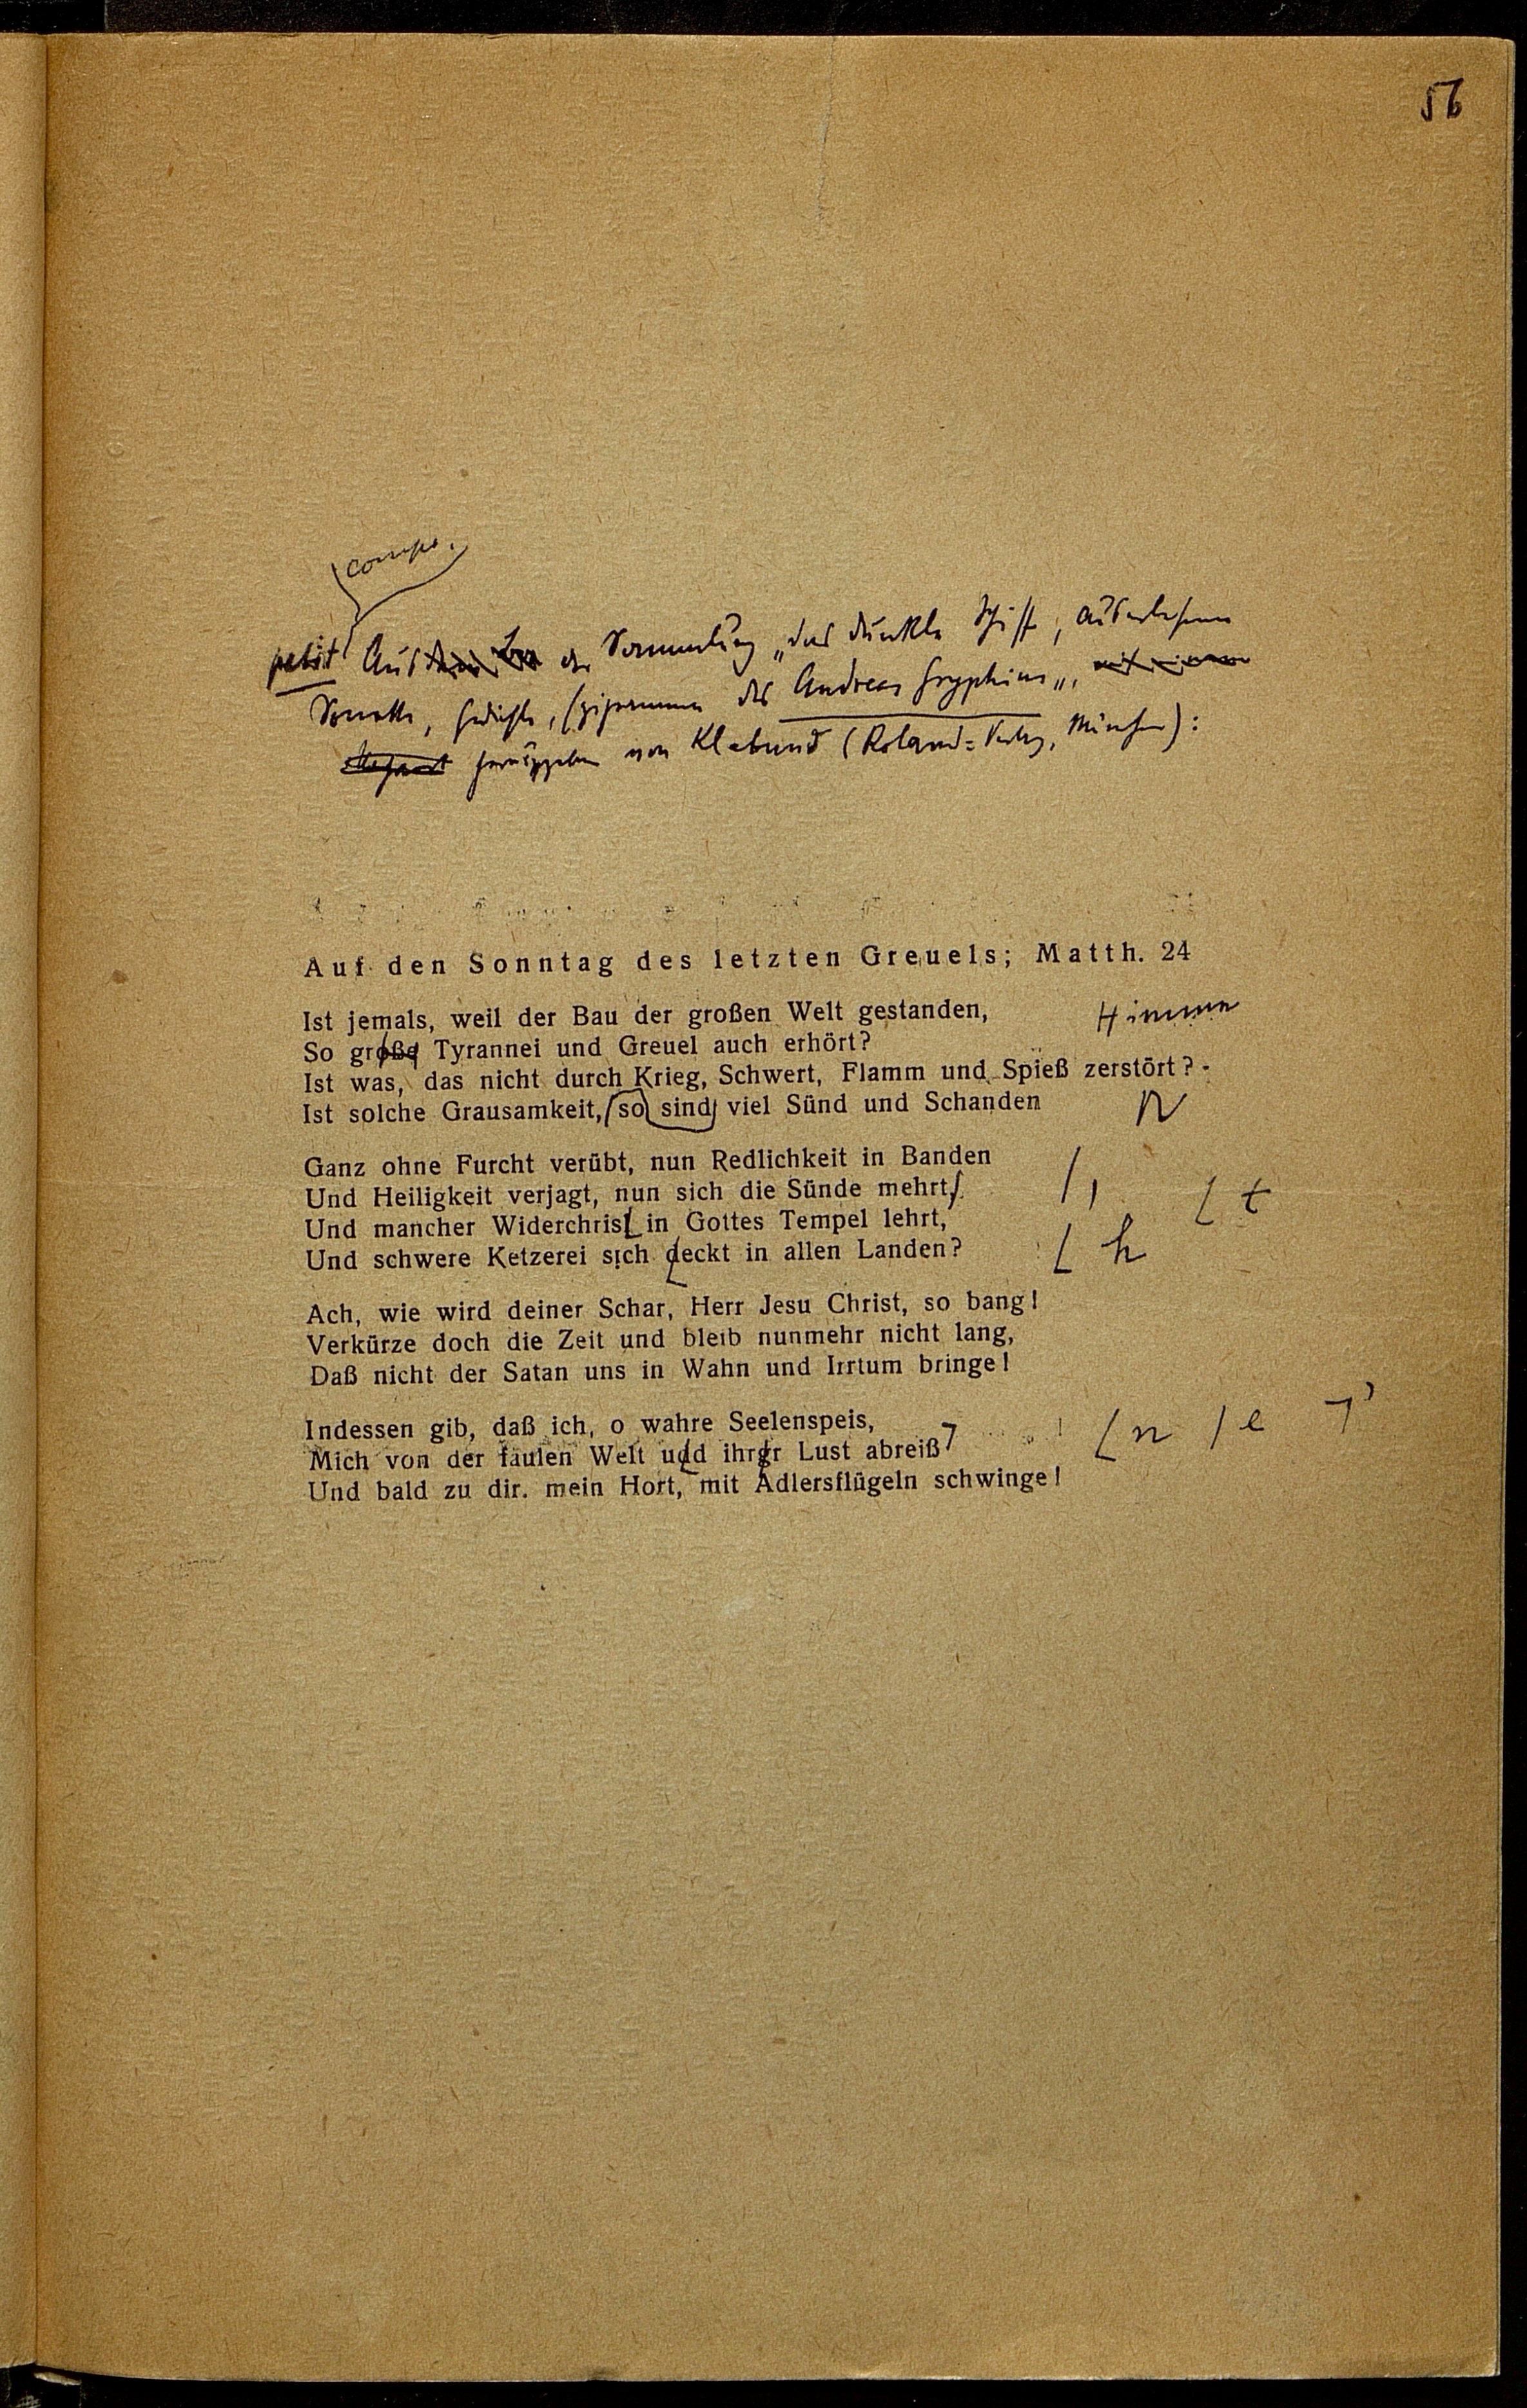 56
petit Aus der Sammlung „das dunkle Schiff, auserlesene
Sonette, Gedichte, Epigramme des Andreas Gryphius",
herausgegeben von Klabund (Roland=Verlag, München):
Auf den Sonntag des letzten Greuels; Matth. 24
Ist jemals, weil der Bau der großen Welt gestanden,
So große Tyrannei und Greuel auch erhört?
Ist was, das nicht durch Krieg, Schwert, Flamm und Spieß zerstört?
Ist solche Grausamkeit, so sind viel Sünd und Schanden
Ganz ohne Furcht verübt, nun Redlichkeit in Banden
Und Heiligkeit verjagt, nun sich die Sünde mehrt, ⌊ t
Und mancher Widerchrist in Gottes Tempel lehrt,
Und schwere Ketzerei sich deckt in allen Landen? ⌊ h
Ach, wie wird deiner Schar, Herr Jesu Christ, so bang!
Verkürze doch die Zeit und bleib nunmehr nicht lang,
Daß nicht der Satan uns in Wahn und Irrtum bringe!
Indessen gib, daß ich, o wahre Seelenspeis,
Mich von der faulen Welt uud ihrer Lust abreiß ⌊ n / e ⌉ ’
Und bald zu dir. mein Hort, mit Adlersflügeln schwinge!